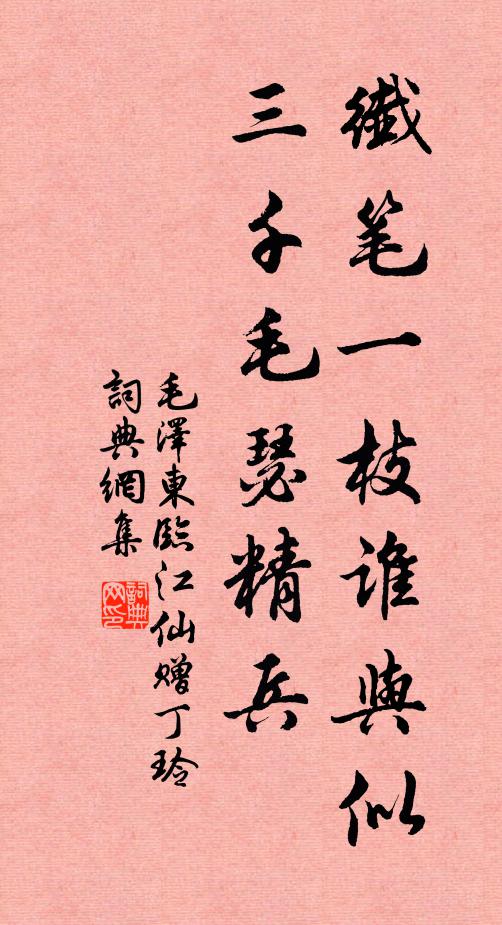 纎笔一枝谁與似
三千毛瑟精兵
毛澤東臨江仙赠丁玲
詞典網集
詞典
网印